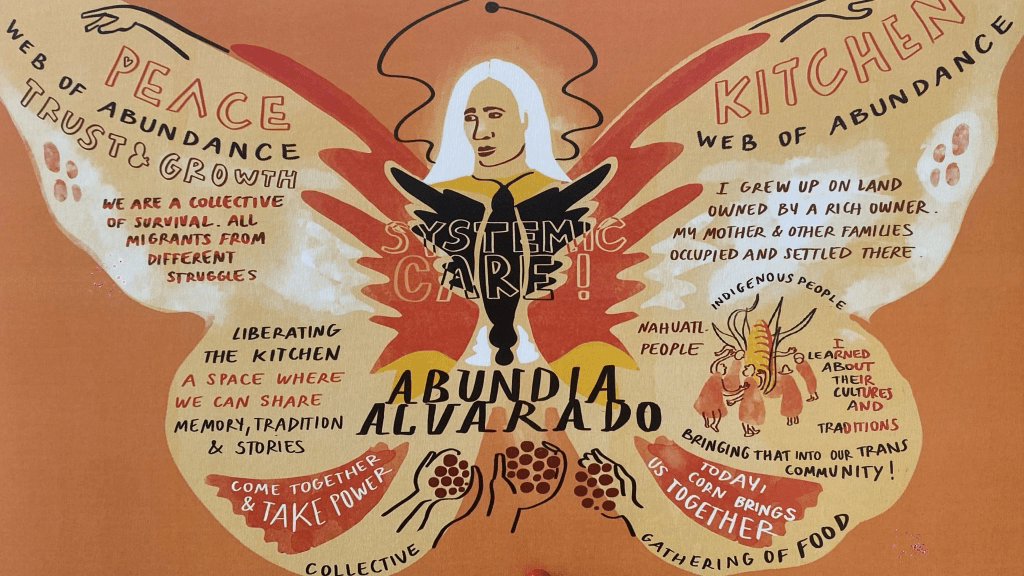 PEACE
WEB OF ABUNDANCE
TRUST & GROWTH
WE ARE A COLLECTIVE
OF SURVIVAL. ALL
MIGRANTS FROM
DIFFERENT
STRUGGLES
LIBERATING
THE KITCHEN
A SPACE WHERE
WE CAN SHARE
MEMORY, TRADITION
& STORIES
COME TOGETHER
& TAKE POWER
COLLECTIVE
SYSTEMIC
CARE!
ABUNDIA
ALVARADO
KITCHEN
WEB OF ABUNDANCE
I GREW UP ON LAND
OWNED BY A RICH OWNER.
MY MOTHER & OTHER FAMILIES
OCCUPIED AND SETTLED THERE.
INDIGENOUS PEOPLE
NAHUATL
PEOPLE
I
LEARNED
ABOUT
THEIR
CULTURES
AND
TRADITIONS
BRINGING THAT INTO OUR TRANS
COMMUNITY!
TODAY,
CORN BRINGS
US TOGETHER
GATHERING OF FOOD